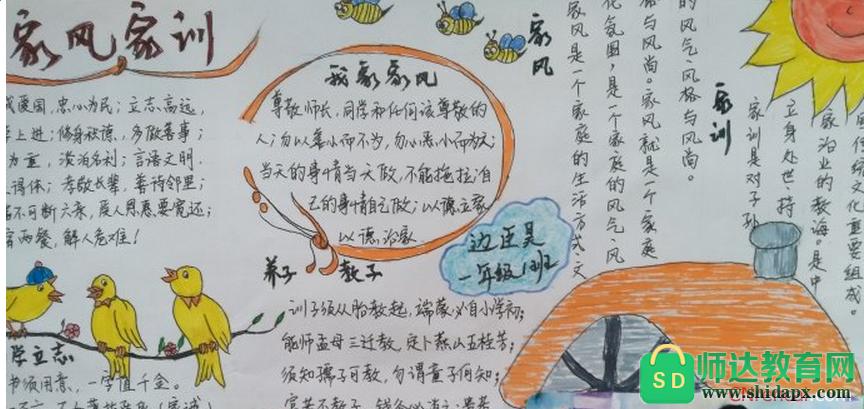 家风家训
我爱国，忠心为民；立志高远，
上进；修身袪德，多做善事；
为重，淡泊名利；言语文明.
得体；孝敬长辈，善待邻里；
不可断六亲，度人恩惠要宽还；
两餐，解人危难！
我家家风
尊敬师长，同学和任何该尊敬的
人；勿以善小而不为，勿以恶小而为之；
当天的事情当天做，不能拖拉；自
己的事情自己做；以德立家，
以德治家.
家风
家风是一个家庭的生活方式、文
化氛围，是一个家庭的风气、风
格与风尚。家风就是一个家庭
的风气、风格与风尚。
家训
家训是对子孙
立身处世、持
家治业的教诲。是中
传统文化重要组成。
边臣昊
一年级1班
养子 教子
训子须从胎教起，端蒙必自小学初；
能师孟母三迁教，定卜燕山五桂芳；
须知孺子可教，勿谓童子何知；
富若不教子，钱谷必消亡；贵若
学立志
书须用意，一字值千金。
师达教育网
SD
www.shidapx.com